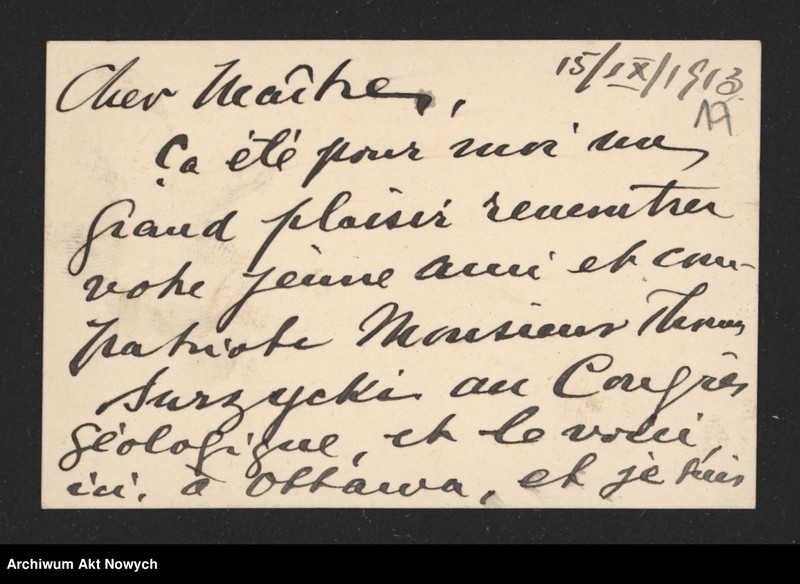 15/IX/1913
19
Cher Maître,
Ça été pour moi un
grand plaisir rencontrer
votre jeune ami et com-
patriote Monsieur Thomas
Surzycki au Congrès
géologique, et le voici
ici, à Ottawa, et je suis
Archiwum Akt Nowych